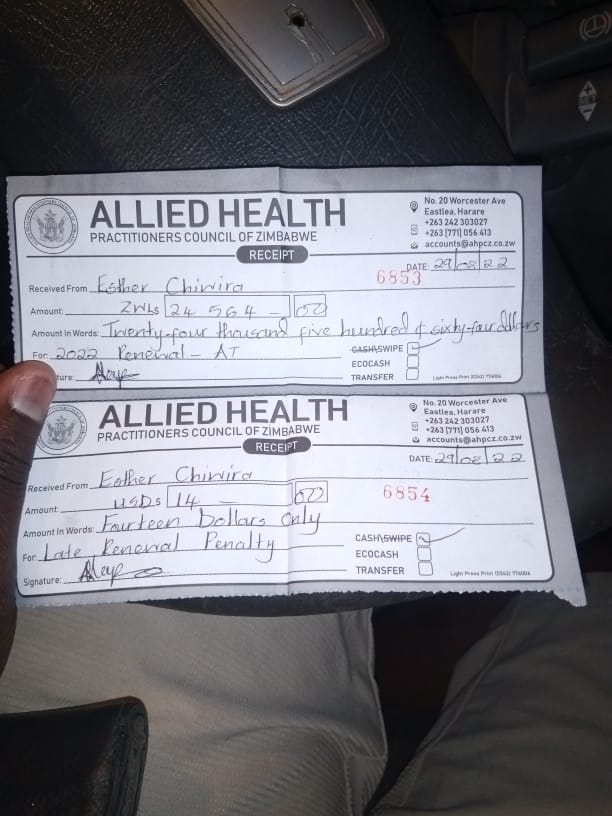 ALLIED HEALTH
PRACTITIONERS COUNCIL OF ZIMBABWE
RECEIPT
No. 20 Worcester Ave
Eastlea, Harare
+263 242 303027
+263 [771] 056 413
accounts@ahpcz.co.zw
DATE: 29/08/22
6853
Received From Esther Chiwira
Amount: ZWL$ 24 564 - 00
Amount In Words: Twenty-four thousand five hundred & sixty-four dollars
For: 2022 Renewal - AT
CASH\SWIPE
ECOCASH
TRANSFER
ture:
Light Press Print (0242) 774006
ALLIED HEALTH
PRACTITIONERS COUNCIL OF ZIMBABWE
RECEIPT
No. 20 Worcester Ave
Eastlea, Harare
+263 242 303027
+263 [771] 056 413
accounts@ahpcz.co.zw
DATE: 29/08/22
6854
Received From Esther Chiwira
Amount: USD$ 14 - 00
Amount In Words: Fourteen Dollars Only
For: Late Renewal Penalty
CASH\SWIPE
ECOCASH
TRANSFER
Signature:
Light Press Print (0242) 774006